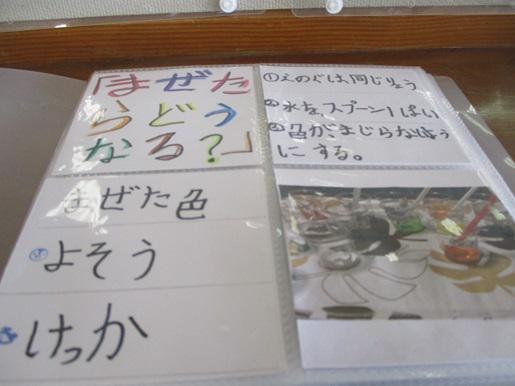 「まぜた
らどう
なる?」
まぜた色
よそう
けっか
①えのぐは同じりょう
②水をスプーン1ぱい
③色がまじらないように
にする。